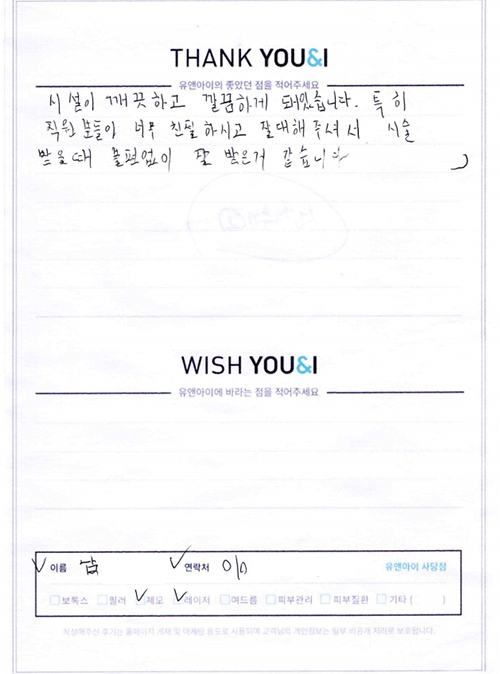 THANK YOU&I
유앤아이의 좋았던 점을 적어주세요
시설이 깨끗하고 깔끔하게 돼있습니다. 특히
직원분들이 너무 친절하시고 잘대해주셔서 시술
받을때 불편없이 잘 받은거 같습니다
WISH YOU&I
유앤아이에 바라는 점을 적어주세요
이름 연락처 유앤아이 사당점
보톡스 필러 제모 레이저 여드름 피부관리 피부질환 기타 ( )
작성해주신 후기는 홈페이지 게재 및 마케팅 용도로 사용되며 고객님의 개인정보는 일부 비공개 처리로 보호됩니다.